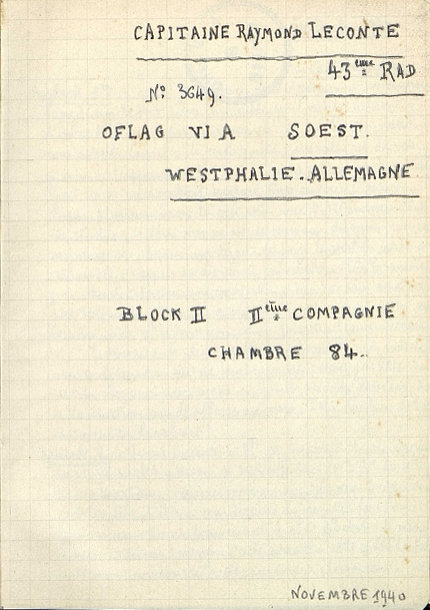 CAPITAINE RAYMOND LECONTE
43ème RAD
No: 3649.
OFLAG VI A SOEST.
WESTPHALIE. ALLEMAGNE
BLOCK II IIème COMPAGNIE
CHAMBRE 84.
NOVEMBRE 1940